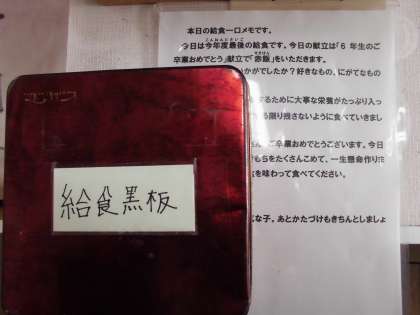 本日の給食一口メモです。
今日は今年度最後の給食です。今日の献立は「6 年生のご
卒業おめでとう」献立で「赤飯」をいただきます。
かがでしたか?好きなもの、にがてなもの
するために大事な栄養がたっぷり入っ
る限り残さないように食べていきまし
ご卒業おめでとうございます。今日
もちをたくさんこめて、一生懸命作りた
を味わって食べてください。
な子。あとかたづけもきちんとしましょ
給食黒板